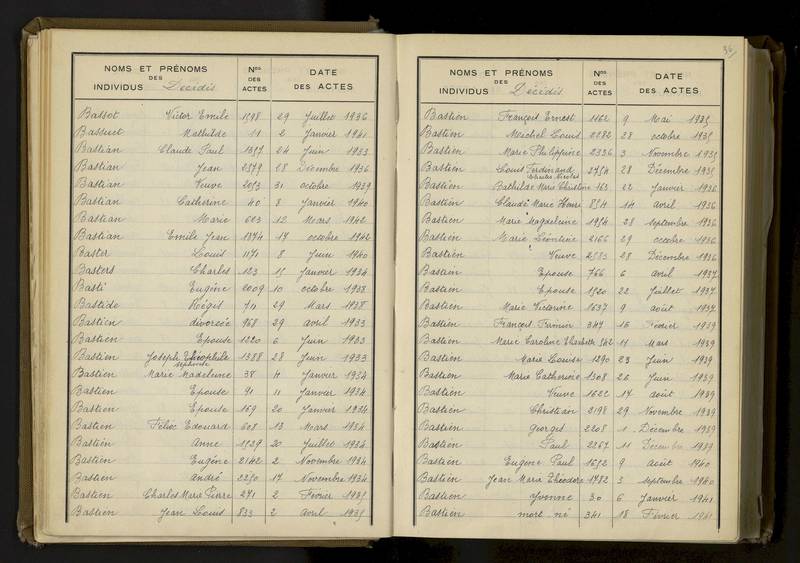 NOMS ET PRÉNOMS DES INDIVIDUS Décédés Nos DES ACTES DATE DES ACTES
Bassot Victor Emile 1598 29 Juillet 1936
Bassuet Mathilde 11 2 Janvier 1941
Bastian Claude Paul 1357 24 Juin 1933
Bastian Jean 2579 28 Décembre 1936
Bastian Veuve 2053 31 octobre 1939
Bastian Catherine 40 8 Janvier 1940
Bastian Marie 603 12 Mars 1942
Bastian Emile Jean 1874 17 octobre 1942
Baster Louis 1171 8 Juin 1940
Basters Charles 123 15 Janvier 1934
Basti Eugène 2009 10 octobre 1938
Bastide Régis 711 29 Mars 1938
Bastien divorcée 968 29 avril 1933
Bastien Epouse 1220 6 Juin 1933
Bastien Joseph Théophile 1388 28 Juin 1933
Bastien Marie Madeleine 38 4 Janvier 1934
Bastien Epouse 91 11 Janvier 1934
Bastien Epouse 169 20 Janvier 1934
Bastien Edouard 608 13 Mars 1934
Bastien Anne 1539 20 Juillet 1934
Bastien Eugène 2142 2 Novembre 1934
Bastien André 2250 17 Novembre 1934
Bastien Charles Marie Pierre 271 2 Février 1935
Bastien Jean Louis 833 2 avril 1935
36
NOMS ET PRÉNOMS DES INDIVIDUS Décédés Nos DES ACTES DATE DES ACTES
Bastien François Ernest 1162 9 Mai 1935
Bastien Michel Louis 2282 28 octobre 1935
Bastien Marie Philippine 2336 3 Novembre 1935
Bastien Louis Ferdinand 2754 28 Décembre 1935
Charles Nicolas
Bastien Bathilde Marie Christine 163 22 Janvier 1936
Bastien Claude Marie Henri 854 14 avril 1936
Bastien Marie Magdeleine 1954 28 septembre 1936
Bastien Marie Léontine 2166 29 octobre 1936
Bastien Veuve 2583 28 Décembre 1936
Bastien Epouse 766 6 avril 1937
Bastien Epouse 1520 22 Juillet 1937
Bastien Marie Victorine 1637 9 août 1937
Bastien François Firmin 347 16 Février 1939
Bastien Marie Caroline Elisabeth 542 11 Mars 1939
Bastien Marie Louise 1290 23 Juin 1939
Bastien Marie Catherine 1308 26 Juin 1939
Bastien Veuve 1622 17 août 1939
Bastien Christian 2198 29 Novembre 1939
Bastien Georges 2208 1 Décembre 1939
Bastien Paul 2267 11 Décembre 1939
Bastien Eugène Paul 1652 9 Août 1940
Bastien Jean Marie Théodore 1782 3 septembre 1940
Bastien Yvonne 30 6 Janvier 1941
Bastien mort né 341 18 Février 1941